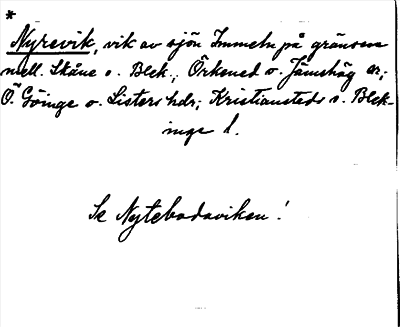 *
Nyrevik, vik av sjön Immeln på gränsen
mell. Skåne o. Blek.; Örkened o. Jämshög sr;
Ö. Göinge o. Listers hdr; Kristianstads o. Blek-
inge l.
Se Nytebodaviken!